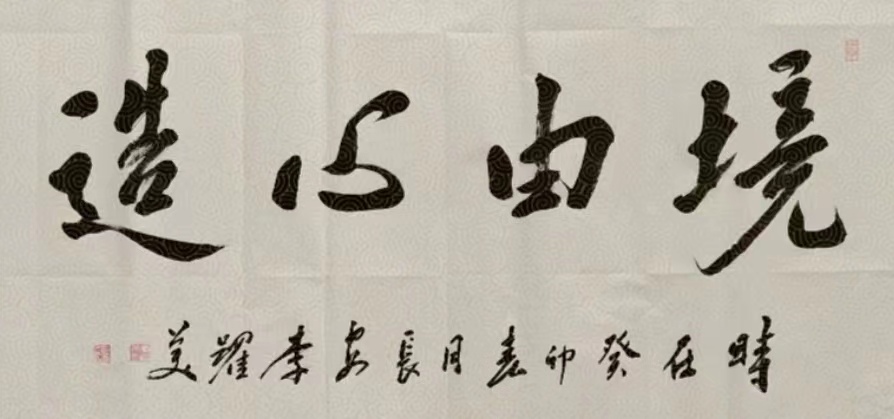 境由心造
時在癸卯春月長安李躍美